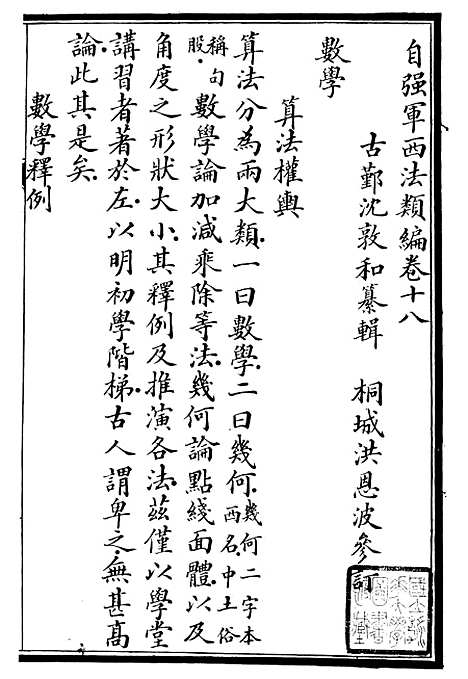 自强軍西法類編卷十八
古鄞沈敦和纂輯　桐城洪恩波參訂
數學
算法權輿
算法分為兩大類.一曰數學.二曰幾何.幾何二字本西名.中土俗
稱句股.數學論加減乘除等法.幾何論點綫面體.以及
角度之形狀大小.其釋例及推演各法.茲僅以學堂
講習者著於左.以明初學階梯.古人謂卑之無甚高
論此其是矣.
數學釋例